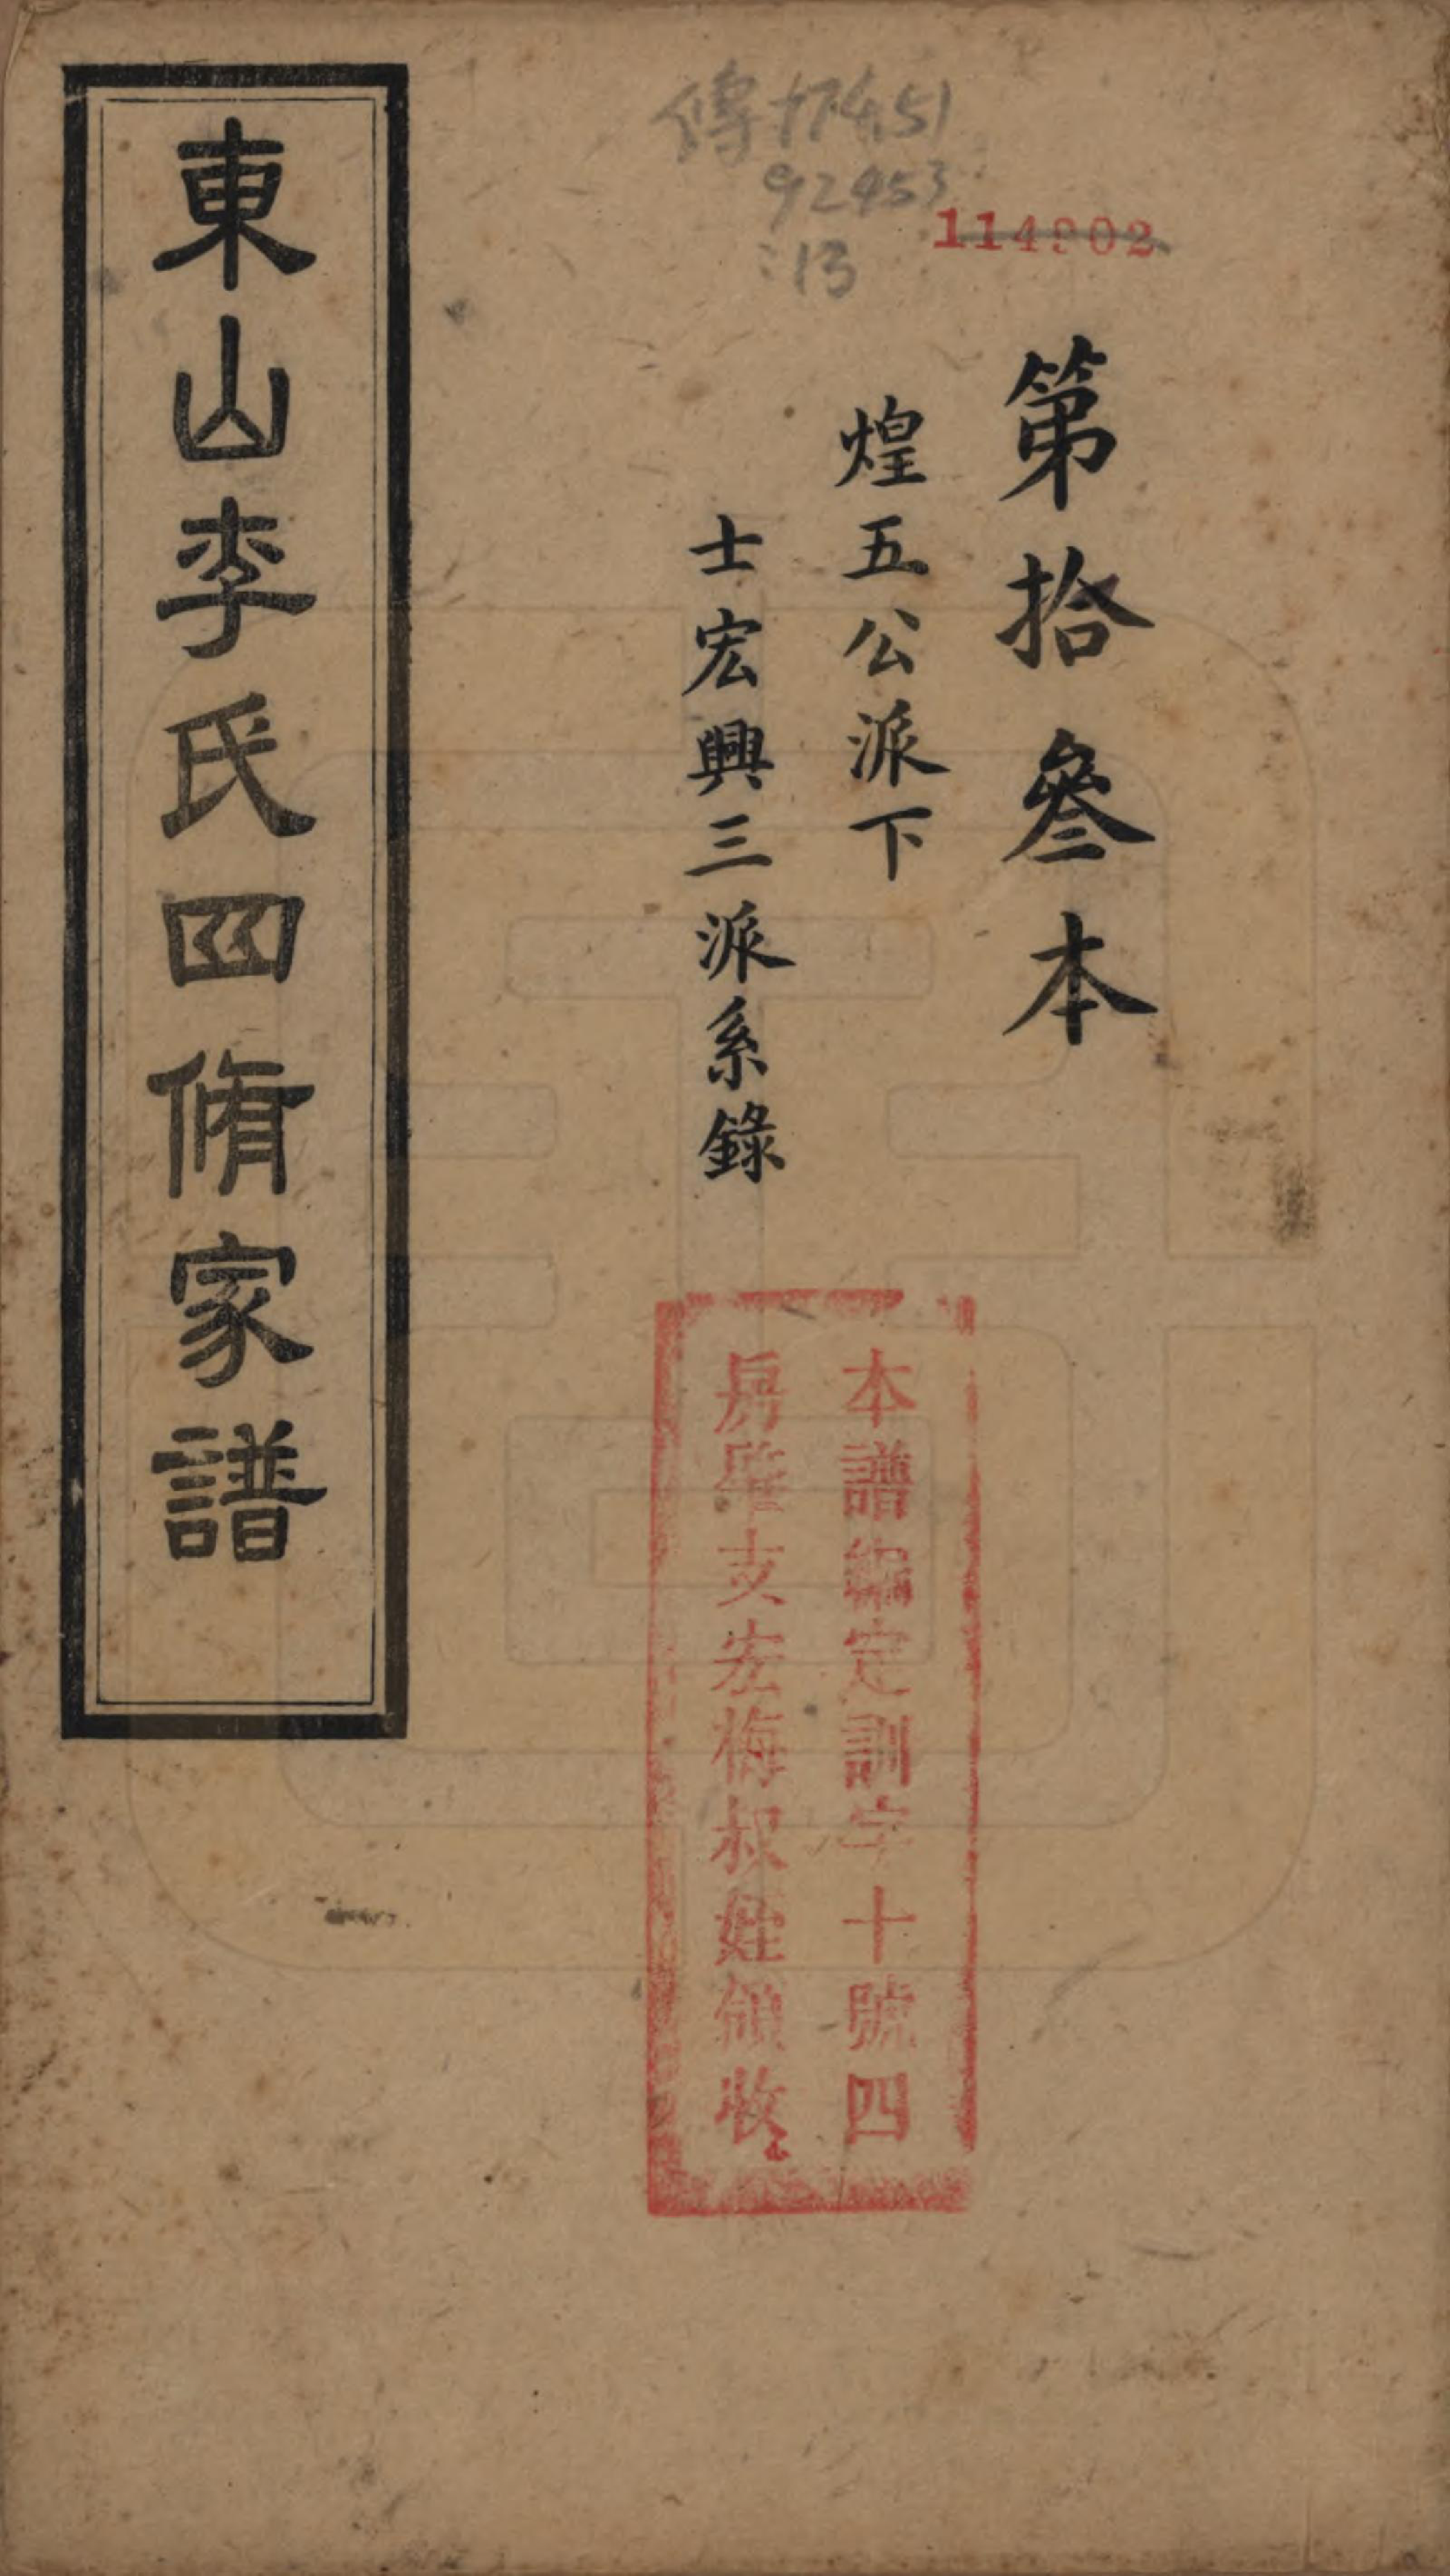 傳
92453
:13
114902
第拾叁本
煌五公派下
士宏興三派系錄
本譜編定訓字十號四
房肇支宏梅叔姪領收
東山李氏四脩家譜